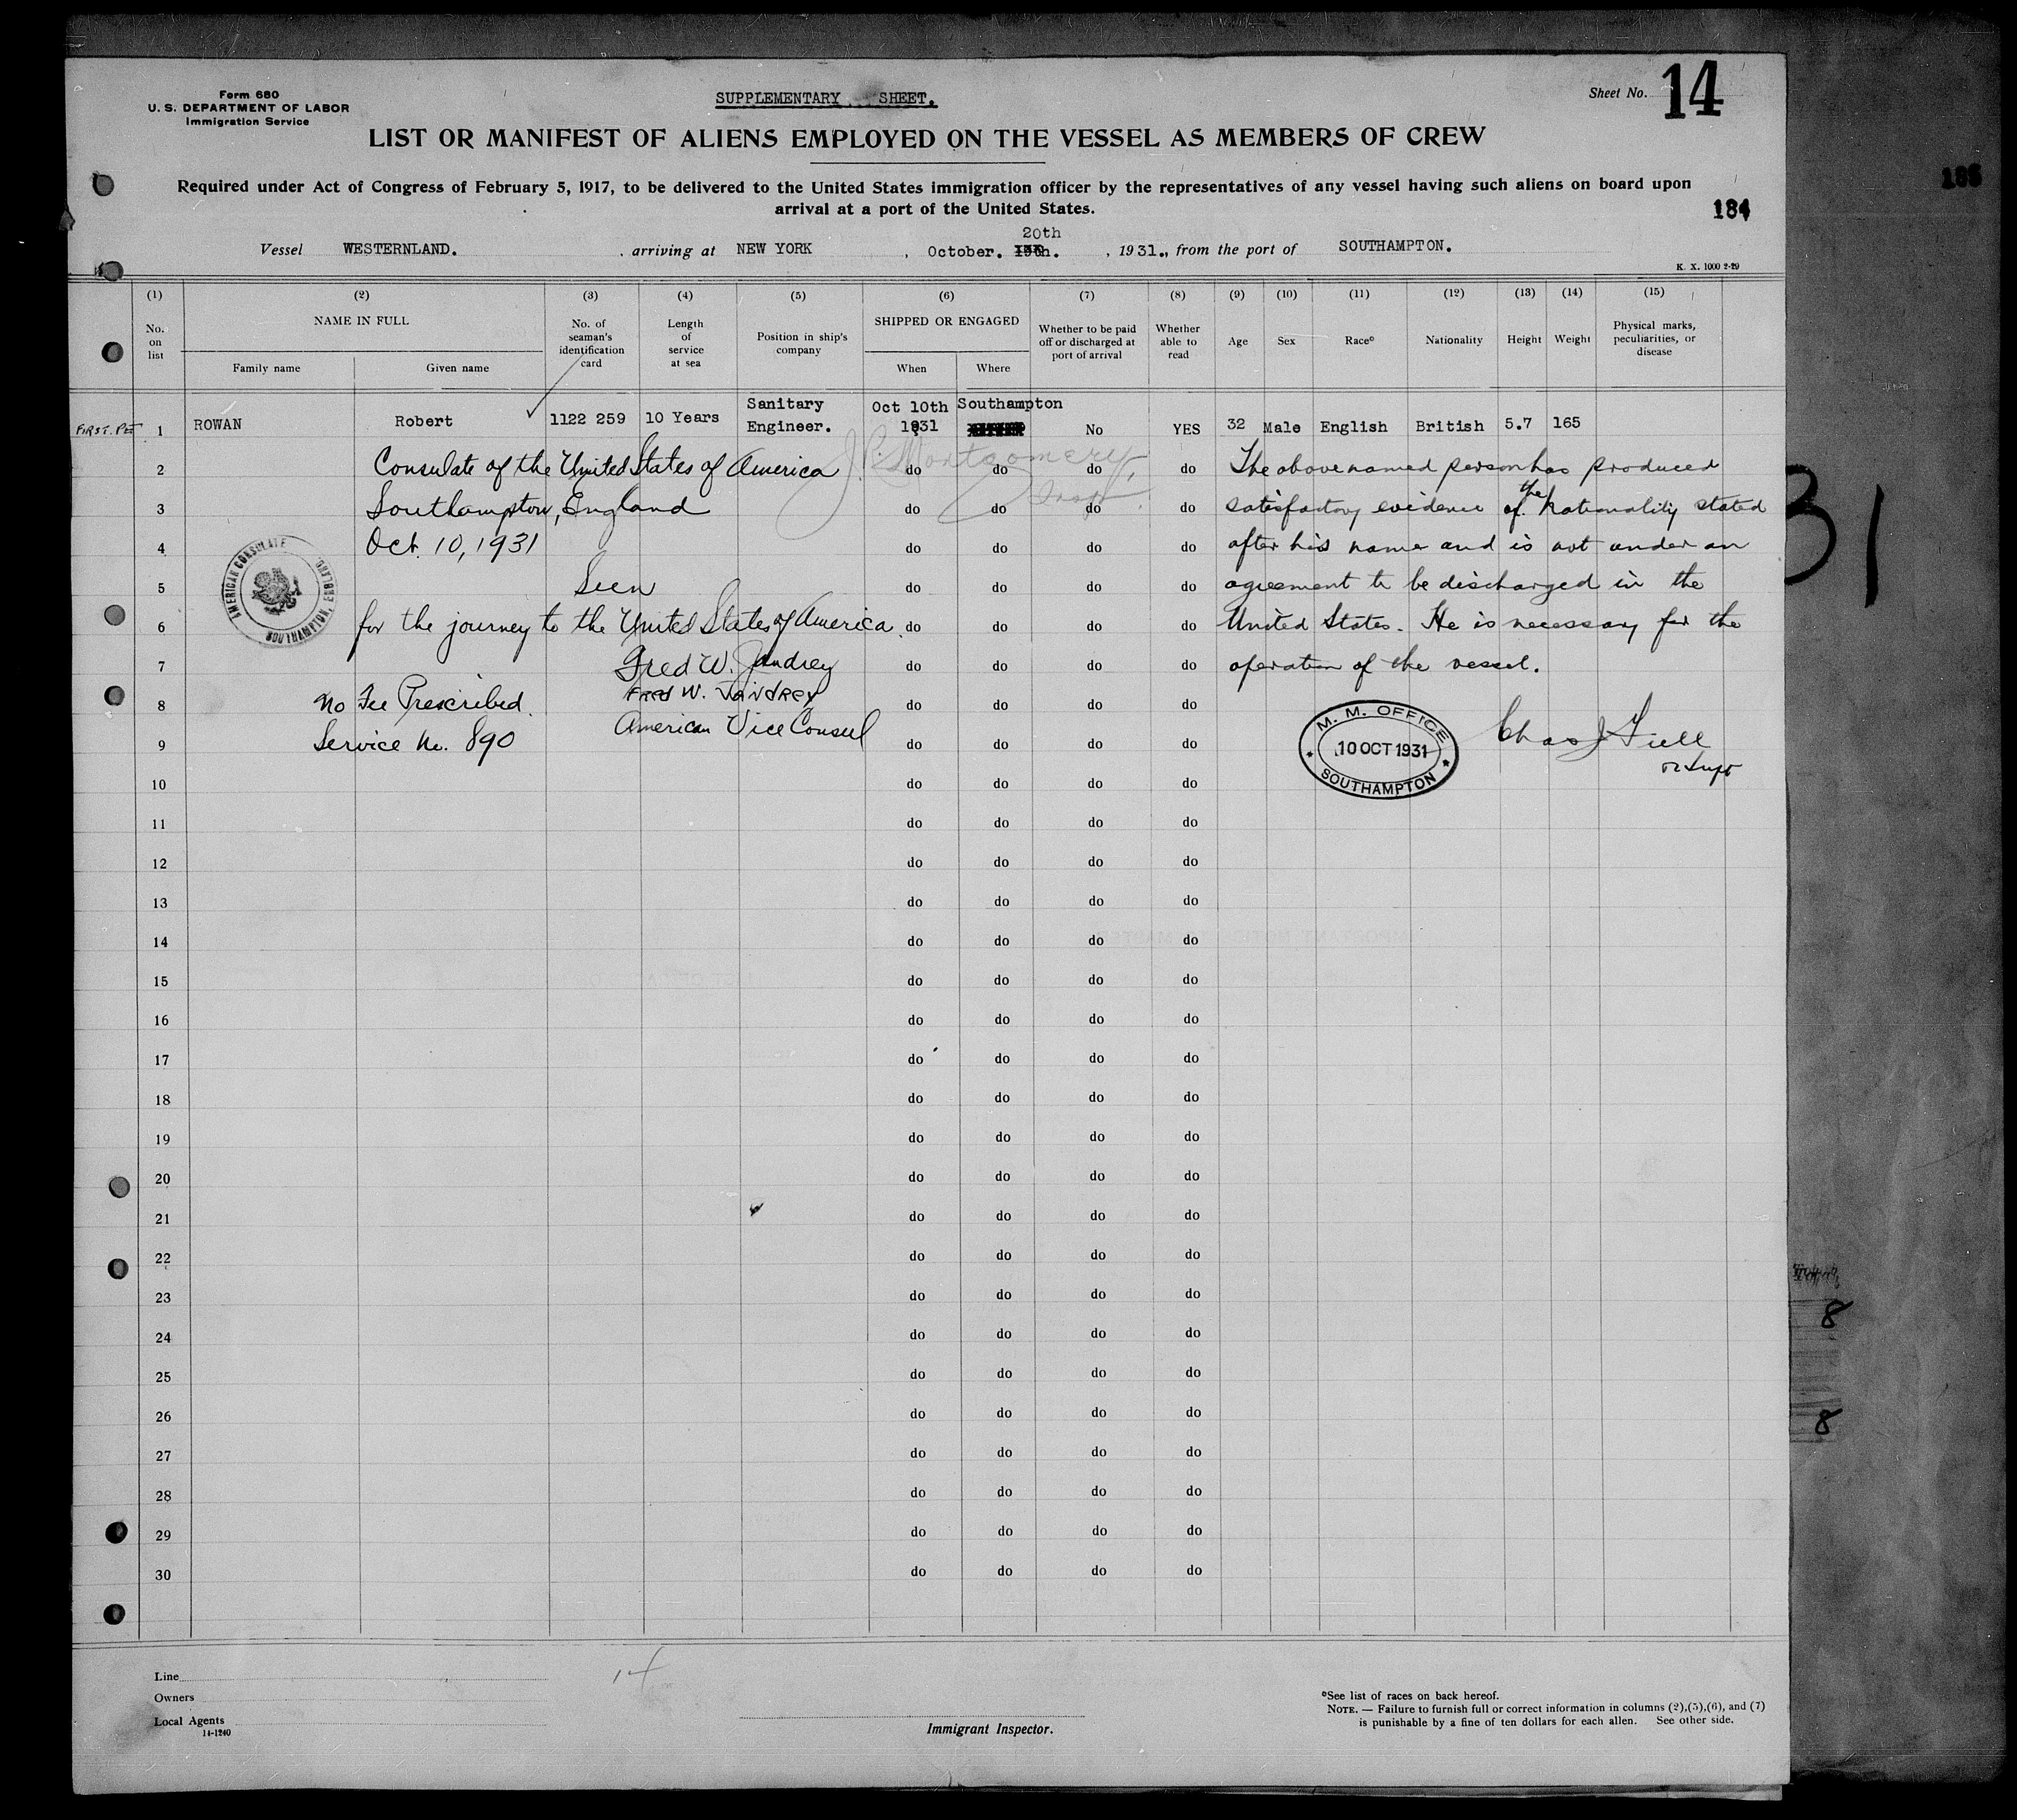 Form 680
U. S. DEPARTMENT OF LABOR
Immigration Service
SUPPLEMENTARY SHEET.
Sheet No. 14
LIST OR MANIFEST OF ALIENS EMPLOYED ON THE VESSEL AS MEMBERS OF CREW
Required under Act of Congress of February 5, 1917, to be delivered to the United States immigration officer by the representatives of any vessel having such aliens on board upon
arrival at a port of the United States.
184
185
20th
Vessel WESTERNLAND. , arriving at NEW YORK , October. , 1931., from the port of SOUTHAMPTON.
K. X. 1000 2-29
(1) (2) (3) (4) (5) (6) (7) (8) (9) (10) (11) (12) (13) (14) (15)
No. on list
NAME IN FULL
Family name
Given name
No. of seaman's identification card
Length of service at sea
Position in ship's company
SHIPPED OR ENGAGED
When
Where
Whether to be paid off or discharged at port of arrival
Whether able to read
Age
Sex
Race*
Nationality
Height
Weight
Physical marks, peculiarities, or disease
1 ROWAN Robert 1122 259 10 Years Sanitary Engineer. Oct 10th 1931 Southampton No YES 32 Male English British 5.7 165
2 Consulate of the United States of America do do do do The above named person has produced
J. P. Montgomery
3 Southampton, England do do do do satisfactory evidence of the nationality stated
4 Oct. 10, 1931 do do do do after his name and is not under an
AMERICAN CONSULATE SOUTHAMPTON, ENGLAND.
5 Seen do do do do agreement to be discharged in the
6 for the journey to the United States of America. do do do do United States. He is necessary for the
7 Fred W. Jandrey do do do do operation of the vessel.
8 No Fee Prescribed. FRED W. JANDREY do do do do
9 Service No. 890 American Vice Consul do do do do
M. M. OFFICE
10 OCT 1931
SOUTHAMPTON
10 do do do do
11 do do do do
12 do do do do
13 do do do do
14 do do do do
15 do do do do
16 do do do do
17 do do do do
18 do do do do
19 do do do do
20 do do do do
21 do do do do
22 do do do do
23 do do do do
24 do do do do
25 do do do do
26 do do do do
27 do do do do
28 do do do do
29 do do do do
30 do do do do
31
8
8
Line
14
Owners
Local Agents
14-1240
Immigrant Inspector.
*See list of races on back hereof.
NOTE. — Failure to furnish full or correct information in columns (2),(5),(6), and (7)
is punishable by a fine of ten dollars for each alien. See other side.